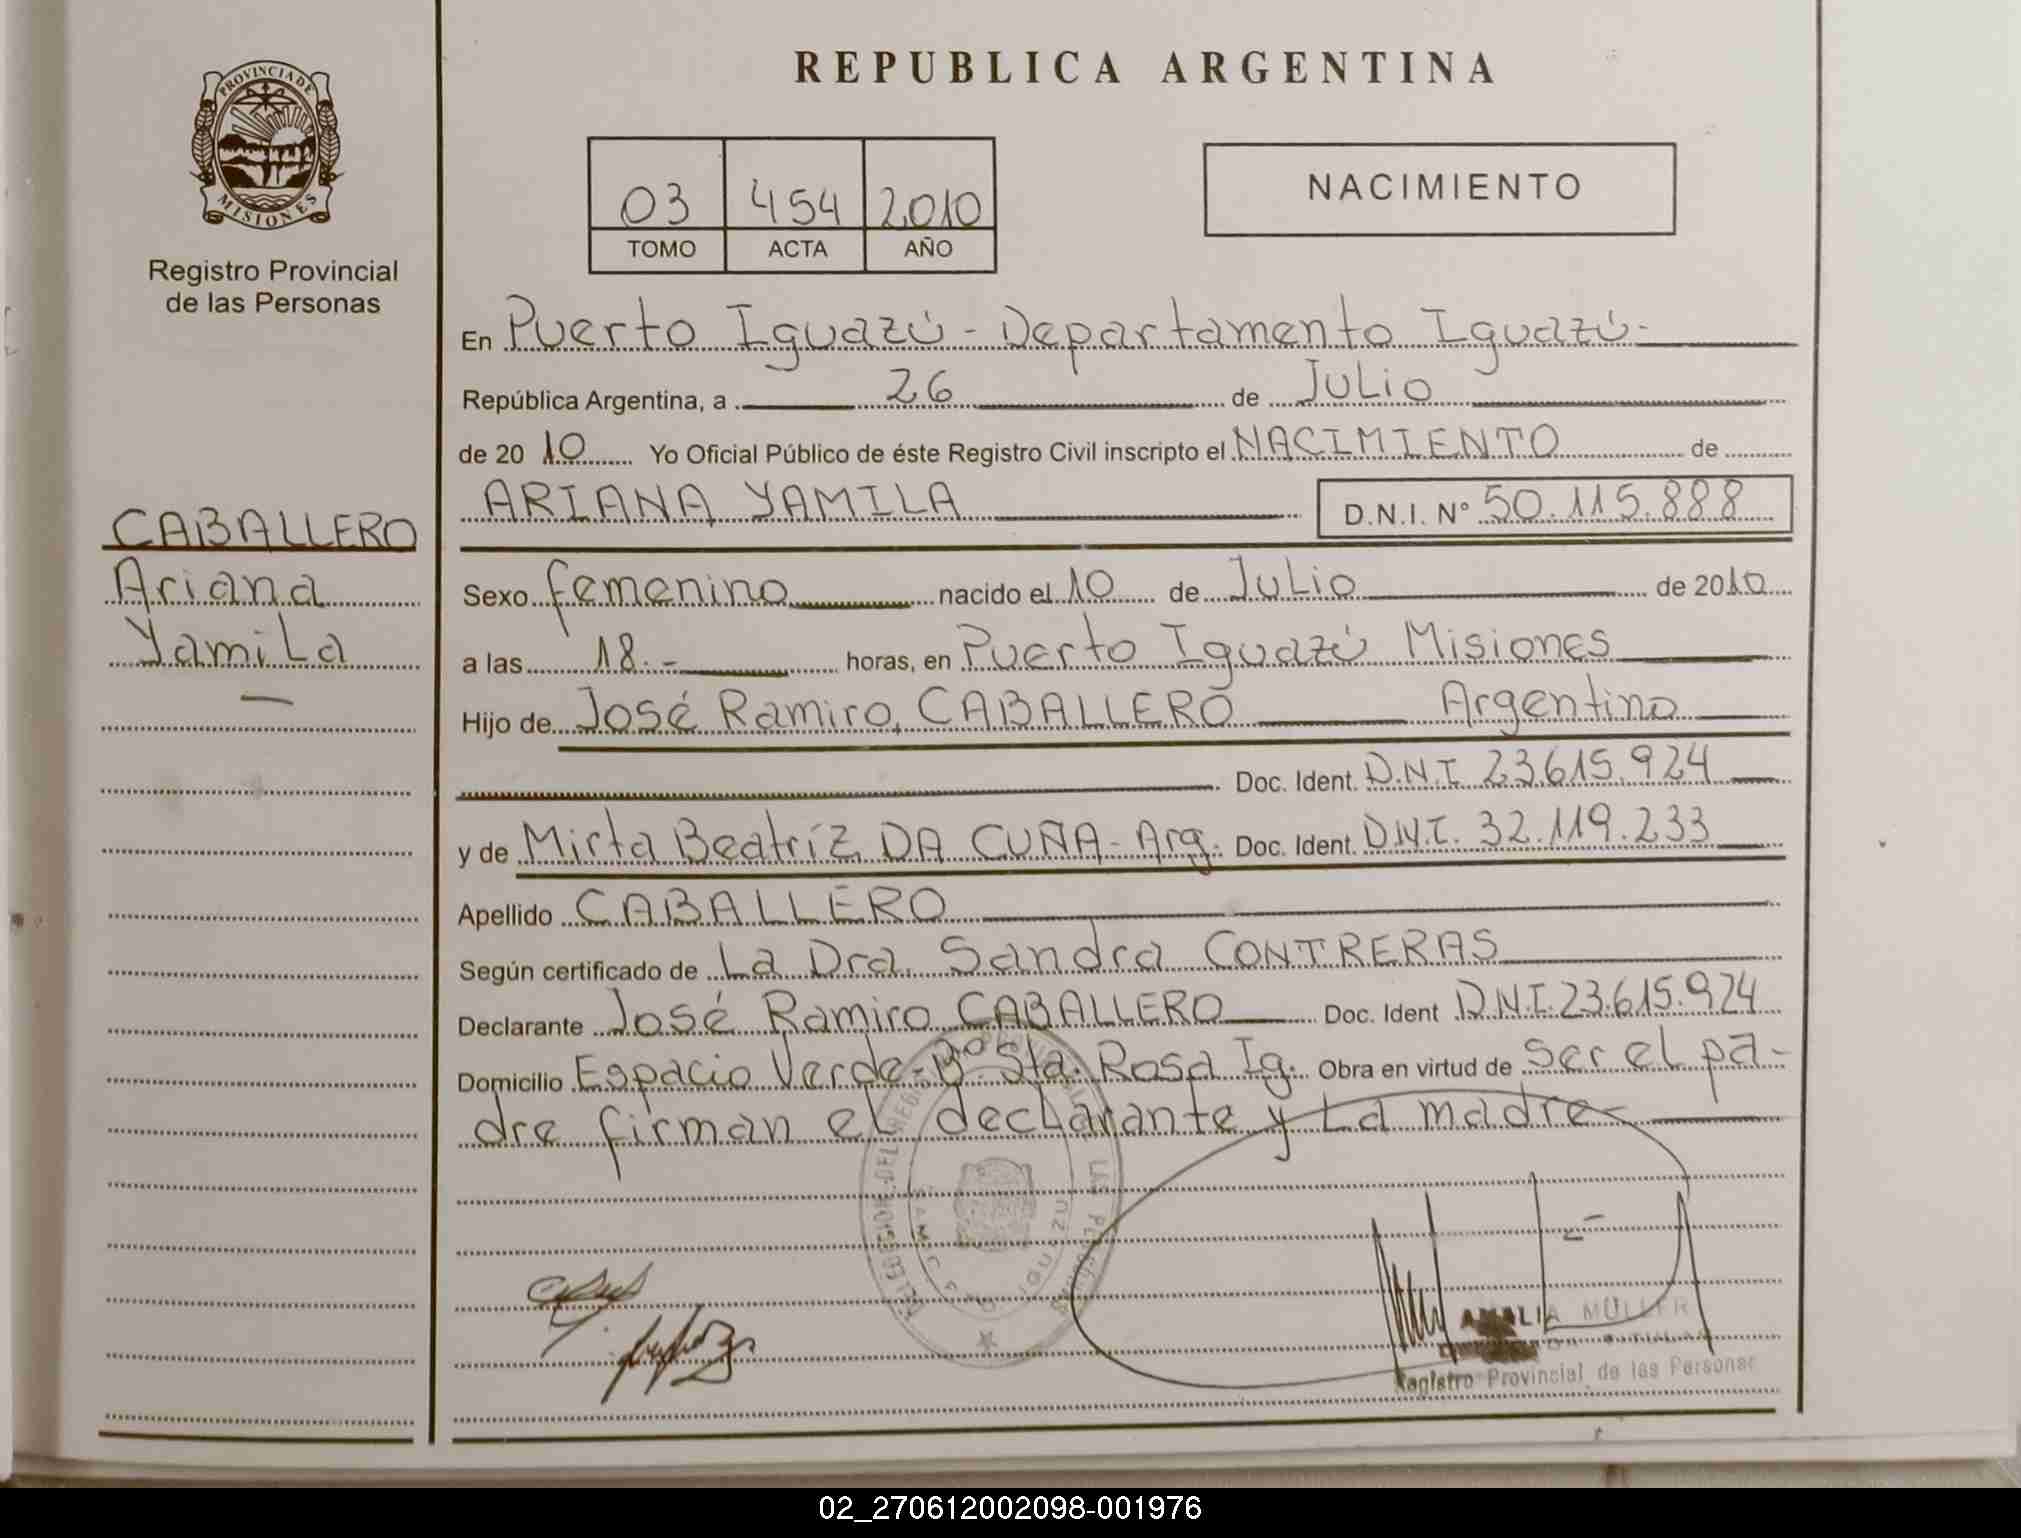 REPUBLICA ARGENTINA
PROVINCIA DE
MISIONES
Registro Provincial
de las Personas
03 454 2010
TOMO ACTA AÑO
NACIMIENTO
En Puerto Iguazú - Departamento Iguazú-
República Argentina, a 26 de Julio
de 2010 Yo Oficial Público de éste Registro Civil inscripto el NACIMIENTO de
ARIANA YAMILA D.N.I. N° 50.115.888
CABALLERO
Ariana
Yamila
Sexo femenino nacido el 10 de Julio de 2010
a las 18.- horas, en Puerto Iguazú Misiones
Hijo de José Ramiro, CABALLERO Argentino
Doc. Ident. D.N.I. 23.615.924
y de Mirta Beatríz DA CUÑA - Arg. Doc. Ident. D.N.I. 32.119.233
Apellido CABALLERO
Según certificado de La Dra. Sandra CONTRERAS
Declarante José Ramiro CABALLERO Doc. Ident D.N.I. 23.615.924
Domicilio Espacio Verde-B° Sta. Rosa Ig. Obra en virtud de ser el pa-
dre firman el declarante y La madre
AMALIA MÜLLER
Registro Provincial de las Personas
02_270612002098-001976